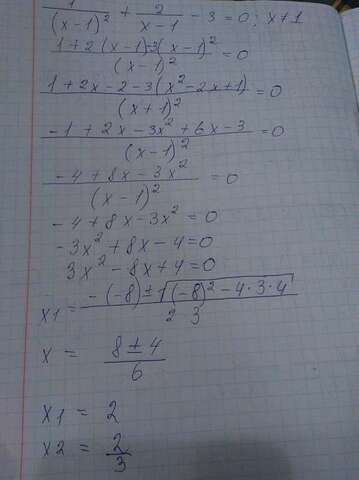 1/(x-1)² + 2/(x-1) - 3 = 0; x≠1
(1+2(x-1)-3(x-1)²)/(x-1)² = 0
(1+2x-2-3(x²-2x+1))/(x+1)² = 0
(-1+2x-3x²+6x-3)/(x-1)² = 0
(-4+8x-3x²)/(x-1)² = 0
-4+8x-3x² = 0
-3x²+8x-4=0
3x²-8x+4=0
x1 = (-(-8)±√((-8)²-4·3·4))/(2 3)
x = (8±4)/6
x1 = 2
x2 = 2/3